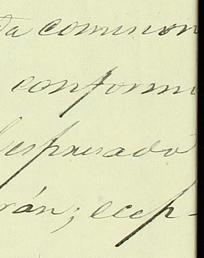 da comision
conformi
espresado
rán; ecep-